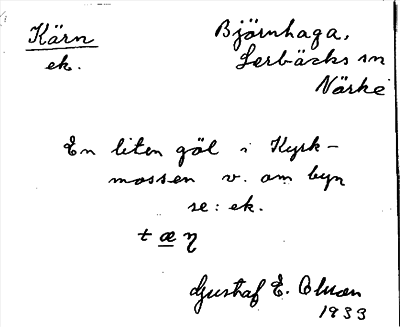 Kärn
ek.
Björnhaga,
Lerbäcks sn
Närke
En liten göl i Kyrk-
mossen v. om byn
se: ek.
t æ η
Gustaf E. Olsson
1933